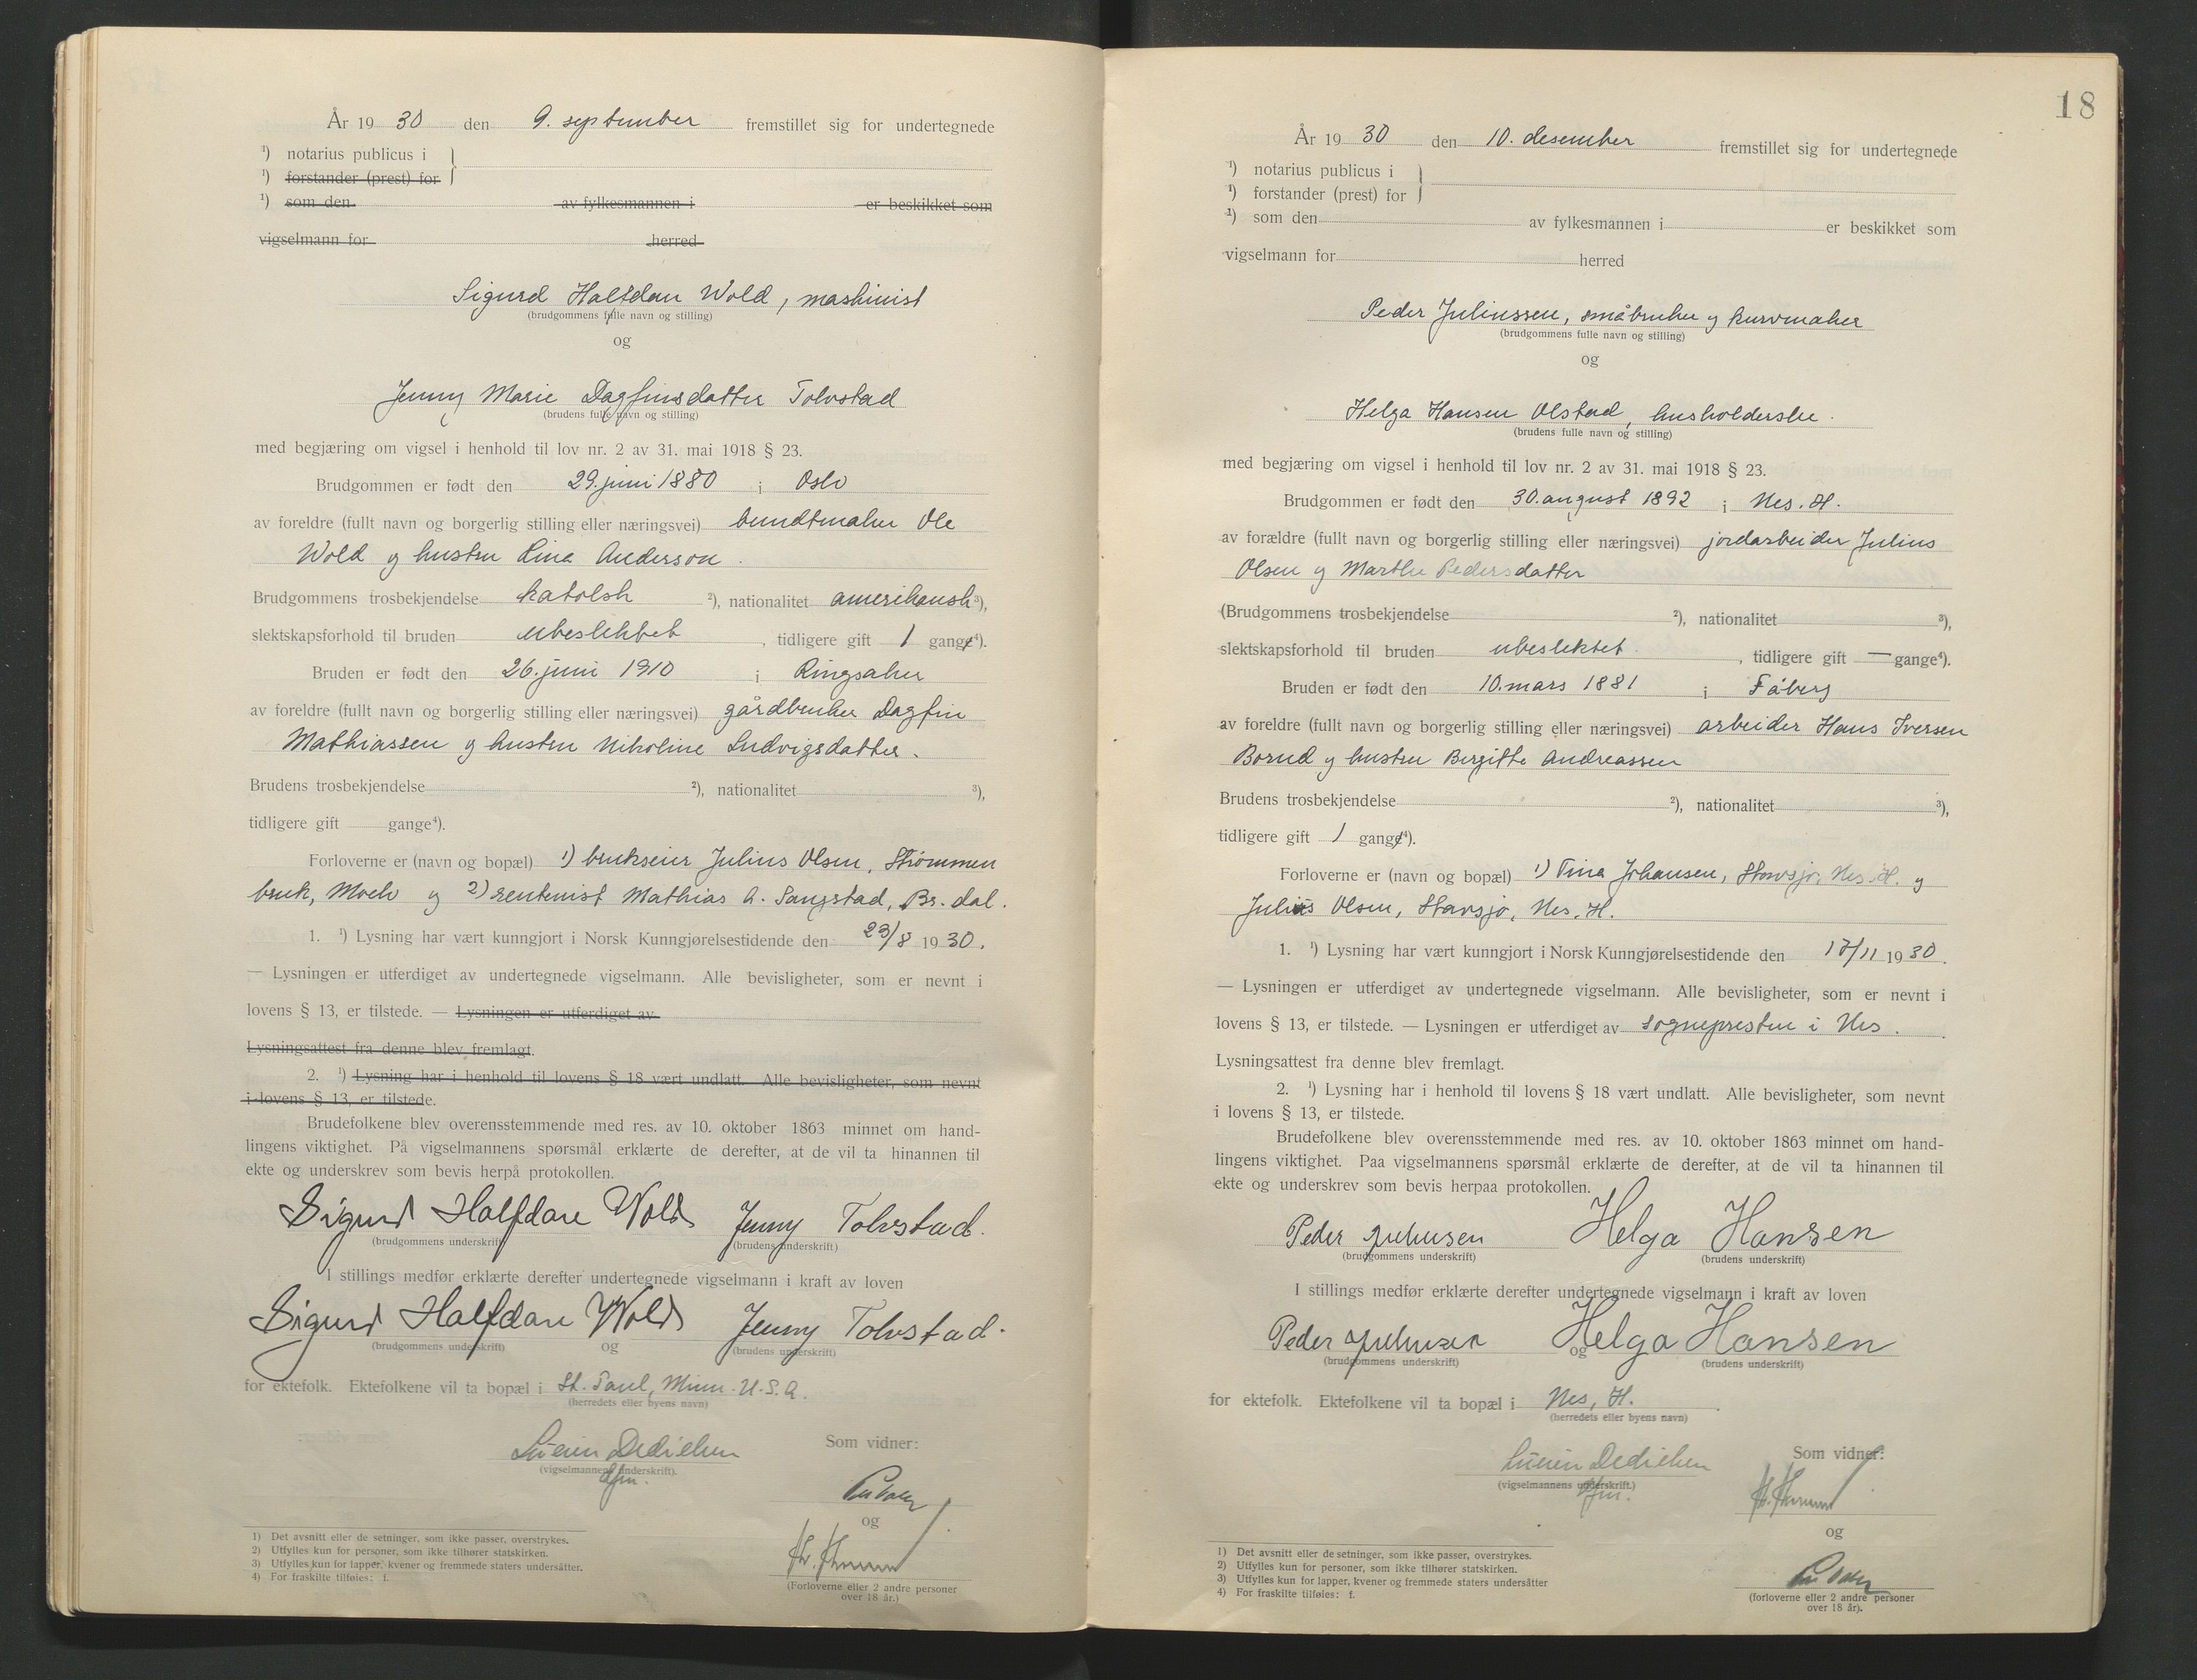 År 19 30 den 9. september fremstillet sig for undertegnede
¹) notarius publicus i
¹) forstander (prest) for
¹) som den av fylkesmannen i er beskikket som
vigselmann for herred
Sigurd Halfdan Wold, maskinist
(brudgommens fulle navn og stilling)
og
Jenny Marie Dagfinsdatter Tolvstad
(brudens fulle navn og stilling)
med begjæring om vigsel i henhold til lov nr. 2 av 31. mai 1918 § 23.
Brudgommen er født den 29. juni 1880 i Oslo
av foreldre (fullt navn og borgerlig stilling eller næringsvei) bundtmaker Ole
Wold og hustru Lina Anderson.
Brudgommens trosbekjendelse katolsk ²), nationalitet amerikansk ³),
slektskapsforhold til bruden ubeslektet, tidligere gift 1 gange⁴).
Bruden er født den 26. juni 1910 i Ringsaker
av foreldre (fullt navn og borgerlig stilling eller næringsvei) gårdbruker Dagfin
Mathiassen og hustru Nikoline Ludvigsdatter.
Brudens trosbekjendelse ²), nationalitet ³),
tidligere gift gange⁴).
Forloverne er (navn og bopæl) 1) brukseier Julius Olsen, Strömmen
bruk, Moelv og 2) rentenist Mathias A. Saugstad, Br. dal.
1. ¹) Lysning har vært kunngjort i Norsk Kunngjørelsestidende den 23/8 19 30.
— Lysningen er utferdiget av undertegnede vigselmann. Alle bevisligheter, som er nevnt i
lovens § 13, er tilstede. — Lysningen er utferdiget av
Lysningsattest fra denne blev fremlagt.
2. ¹) Lysning har i henhold til lovens § 18 vært undlatt. Alle bevisligheter, som nevnt
i lovens § 13, er tilstede.
Brudefolkene blev overensstemmende med res. av 10. oktober 1863 minnet om hand-
lingens viktighet. På vigselmannens spørsmål erklærte de derefter, at de vil ta hinannen til
ekte og underskrev som bevis herpå protokollen.
Sigurd Halfdan Wold Jenny Tolvstad.
(brudgommens underskrift) (brudens underskrift)
I stillings medfør erklærte derefter undertegnede vigselmann i kraft av loven
Sigurd Halfdan Wold Jenny Tolvstad.
(brudgommens underskrift) og (brudens underskrift)
for ektefolk. Ektefolkene vil ta bopæl i St. Paul, Minn. U.S.A.
(herredets eller byens navn)
Som vidner:
Lucien Dedichen
(vigselmannens underskrift).
og
(Forloverne eller 2 andre personer
over 18 år.)
1) Det avsnitt eller de setninger, som ikke passer, overstrykes.
2) Utfylles kun for personer, som ikke tilhører statskirken.
3) Utfylles kun for lapper, kvener og fremmede staters undersåtter.
4) For fraskilte tilføies: f.
18
År 19 30 den 10. desember fremstillet sig for undertegnede
¹) notarius publicus i
¹) forstander (prest) for
¹) som den av fylkesmannen i er beskikket som
vigselmann for herred
Peder Juliussen, småbruker og kurvmaker
(brudgommens fulle navn og stilling)
og
Helga Hansen Olstad, husholderske.
(brudens fulle navn og stilling)
med begjæring om vigsel i henhold til lov nr. 2 av 31. mai 1918 § 23.
Brudgommen er født den 30. august 1892 i Nes. H.
av forældre (fullt navn og borgerlig stilling eller næringsvei) jordarbeider Julius
Olsen og Marthe Pedersdatter
(Brudgommens trosbekjendelse ²), nationalitet ³),
slektskapsforhold til bruden ubeslektet, tidligere gift — gange⁴).
Bruden er født den 10. mars 1881 i Fåberg
av foreldre (fullt navn og borgerlig stilling eller næringsvei) arbeider Hans Iversen
Borud og hustru Bergitte Andreassen
Brudens trosbekjendelse ²), nationalitet ³),
tidligere gift 1 gange⁴).
Forloverne er (navn og bopæl) 1) Tina Johansen, Stavsjø, Nes. H. og
Julius Olsen, Stavsjø, Nes. H.
1. ¹) Lysning har vært kunngjort i Norsk Kunngjørelsestidende den 17/11 19 30.
— Lysningen er utferdiget av undertegnede vigselmann. Alle bevisligheter, som er nevnt i
lovens § 13, er tilstede. — Lysningen er utferdiget av sognepresten i Nes.
Lysningsattest fra denne blev fremlagt.
2. ¹) Lysning har i henhold til lovens § 18 vært undlatt. Alle bevisligheter, som nevnt
i lovens § 13, er tilstede.
Brudefolkene blev overensstemmende med res. av 10. oktober 1863 minnet om hand-
lingens viktighet. Paa vigselmannens spørsmål erklærte de derefter, at de vil ta hinannen til
ekte og underskrev som bevis herpaa protokollen.
Peder Juliusen Helga Hansen
(brudgommens underskrift) (brudens underskrift)
I stillings medfør erklærte derefter undertegnede vigselmann i kraft av loven
Peder Juliusen Helga Hansen
(brudgommens underskrift) og (brudens underskrift)
for ektefolk. Ektefolkene vil ta bopæl i Nes, H.
(herredets eller byens navn)
Som vidner:
Lucien Dedichen
(vigselmannens underskrift.)
og
(forloverne eller 2 andre personer
over 18 år).
1) Det avsnitt eller de setninger, som ikke passer, overstrykes.
2) Utfylles kun for personer, som ikke tilhører statskirken.
3) Utfylles kun for lapper, kvener og fremmede staters undersåtter
4) For fraskilte tilføies: f.